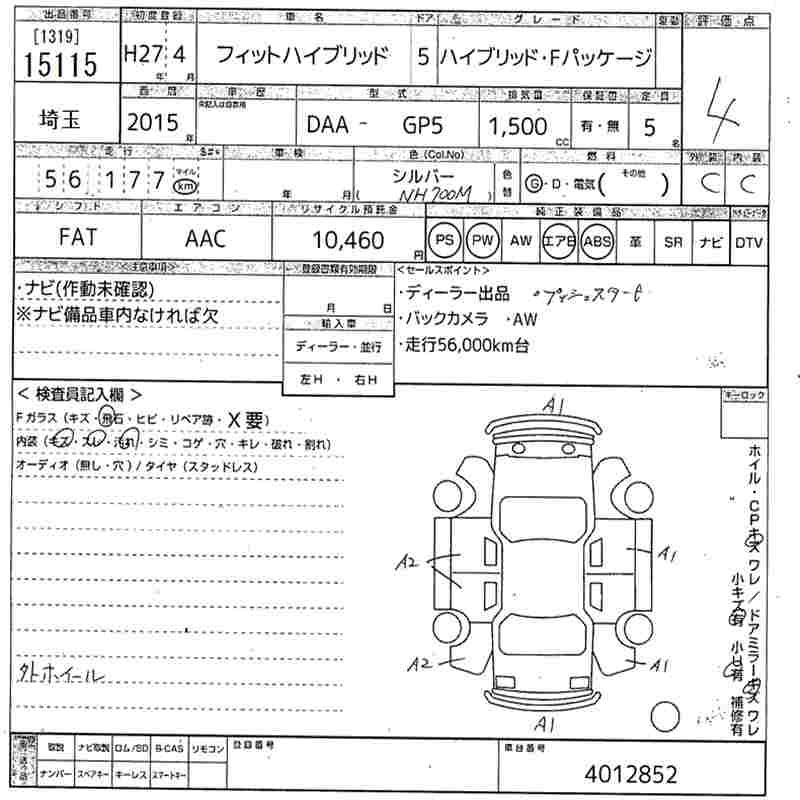 出品番号 初度登録 車名 ドア グレード 評価点
[1319]
15115 H27年 4月 フィットハイブリッド 5 ハイブリッド・Fパッケージ
4
西暦 車歴 型式 排気量 保証書 定員 外装 内装
埼玉 2015年 DAA - GP5 1,500cc 有・無 5名 C C
走行 車検 色(Col.No) 燃料
56,177 マイル km 年 月 シルバー 色替 G・D・電気( その他 )
( NH700M )
シフト エアコン リサイクル預託金 純正装備品
FAT AAC 10,460円 PS PW AW エアB ABS 革 SR ナビ DTV
<注意事項> 登録書類有効期限 <セールスポイント>
・ナビ(作動未確認) ・ディーラー出品 ・プッシュスタート
月 日
※ナビ備品車内なければ欠 ・バックカメラ ・AW
輸入車
ディーラー・並行 ・走行56,000km台
左H ・ 右H
＜検査員記入欄＞ キーロック
Fガラス(キズ・飛石・ヒビ・リペア跡・X要)
内装(キズ・スレ・汚れ・シミ・コゲ・穴・キレ・破れ・割れ)
オーディオ(無し・穴)/タイヤ(スタッドレス)
A1
A2 A1
A2 A1
A1
ホイル・CPキズ ワレ/ドアミラーキズ ワレ
小キズ有 小U有 補修有
外ホイール
取説 ナビ取説 ロム/SD B-CAS リモコン 登録番号 車台番号
ナンバー スペアキー キーレス スマートキー
4012852